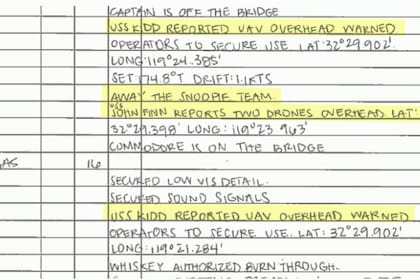 CAPTAIN IS OFF THE BRIDGE
USS KIDD REPORTED UAV OVERHEAD WARNED
OPERATORS TO SECURE USE. LAT: 32°29.902'
LONG: 119°24.385'
SET: 174.8°T DRIFT: 1.1KTS
AWAY THE SNOOPIE TEAM.
USS JOHN FINN REPORTS TWO DRONES OVERHEAD LAT:
32°29.398' LONG: 119°23.963'
COMMODORE IS ON THE BRIDGE
16
SECURED LOW VIS DETAIL.
SECURED SOUND SIGNALS
USS KIDD REPORTED UAV OVERHEAD WARNED
OPERATORS TO SECURE USE. LAT: 32°29.902'
LONG: 119°21.284'
WHISKEY AUTHORIZED BURN THROUGH.